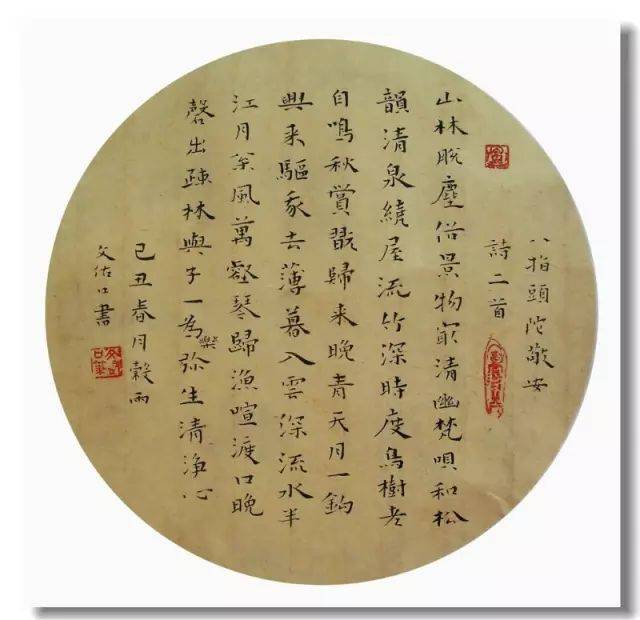 八指頭陀敬安
詩二首
山林脫塵俗景物最清幽梵唄和松
韻清泉繞屋流竹深時度鳥樹老
自鳴秋賞翫歸来晚青天月一鈎
興来驅我去薄暮入雲深流水半
江月枩風萬壑琴歸漁喧渡口晚
磬出疎林與子一為樂弥生清淨心
己丑春月穀雨
文佑口書